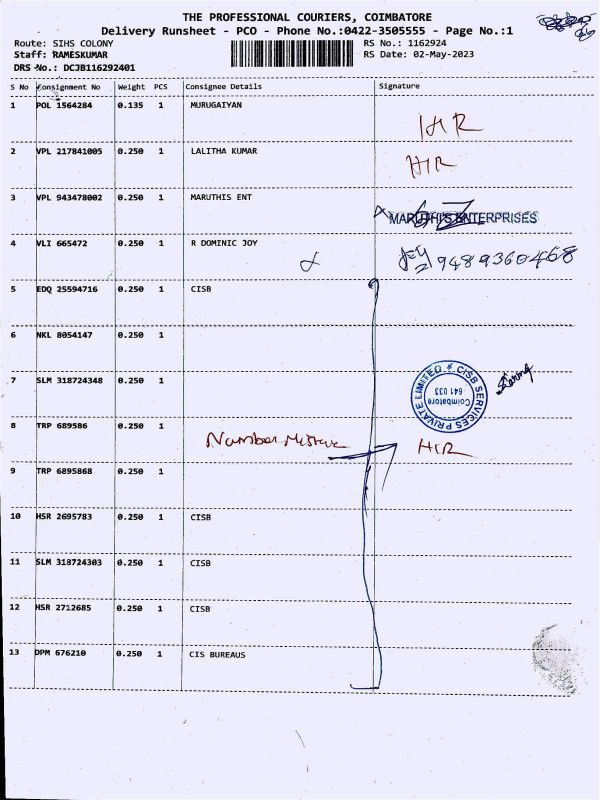 THE PROFESSIONAL COURIERS, COIMBATORE
Delivery Runsheet - PCO - Phone No.:0422-3505555 - Page No.:1
Route: SIHS COLONY
RS No.: 1162924
Staff: RAMESKUMAR
RS Date: 02-May-2023
DRS No.: DCJB116292401
S No Consignment No Weight PCS Consignee Details Signature
1 POL 1564284 0.135 1 MURUGAIYAN
HR
2 VPL 217841005 0.250 1 LALITHA KUMAR
HR
3 VPL 943478002 0.250 1 MARUTHIS ENT
MARUTHI'S ENTERPRISES
4 VLI 665472 0.250 1 R DOMINIC JOY
9489360468
5 EDQ 25594716 0.250 1 CISB
6 NKL 8054147 0.250 1
7 SLM 318724348 0.250 1
CISB SERVICES PRIVATE LIMITED
Coimbatore
641 033
8 TRP 689586 0.250 1
Number Mistake
HR
9 TRP 6895868 0.250 1
10 HSR 2695783 0.250 1 CISB
11 SLM 318724303 0.250 1 CISB
12 HSR 2712685 0.250 1 CISB
13 DPM 676210 0.250 1 CIS BUREAUS